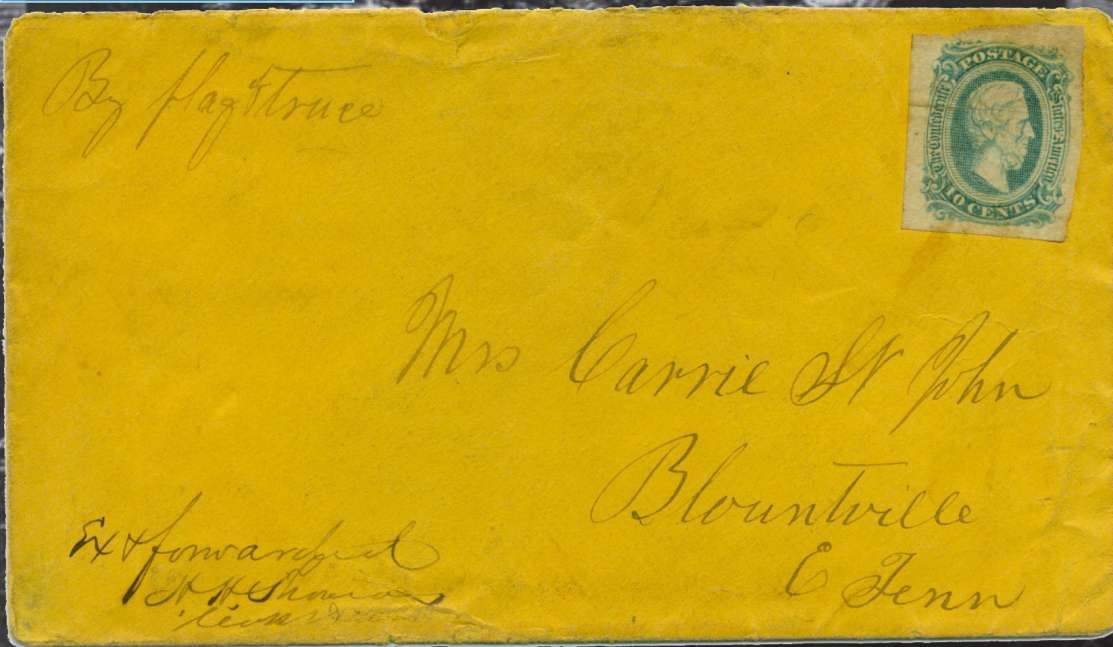 By flag & truce
POSTAGE
The Confederate States America
10 CENTS
Mrs Carrie St John
Blountville
E Tenn
Ex & forwarded
H H